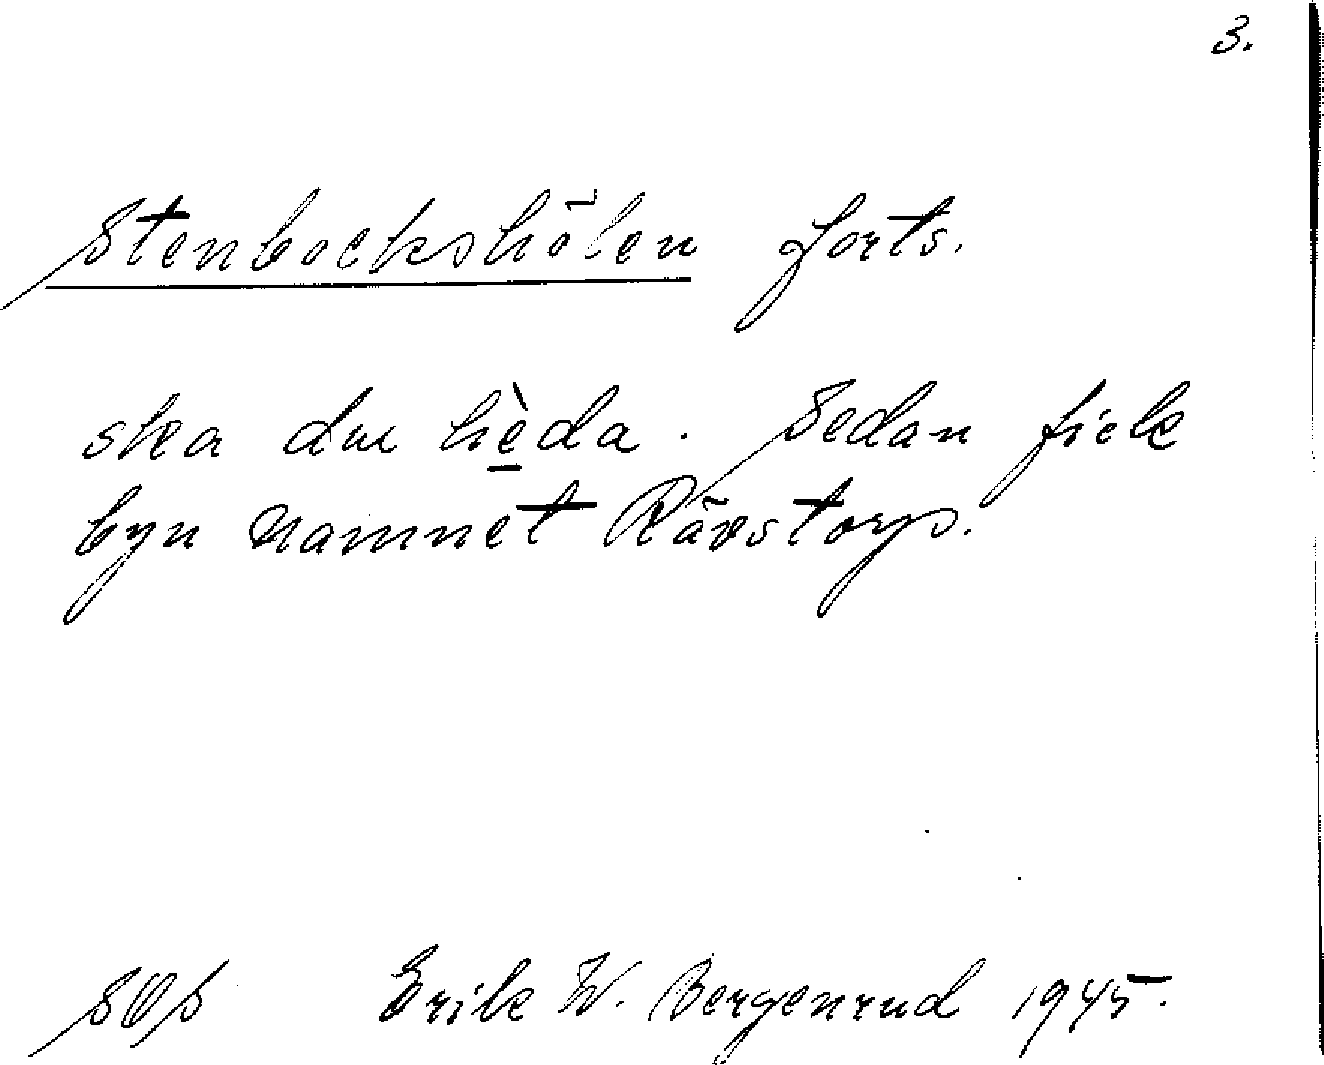 3.
Stenbockshölen forts.
ska du hèda. Sedan fick
byn namnet Rävstorp.
SOS Erik W. Bergenrud 1945.